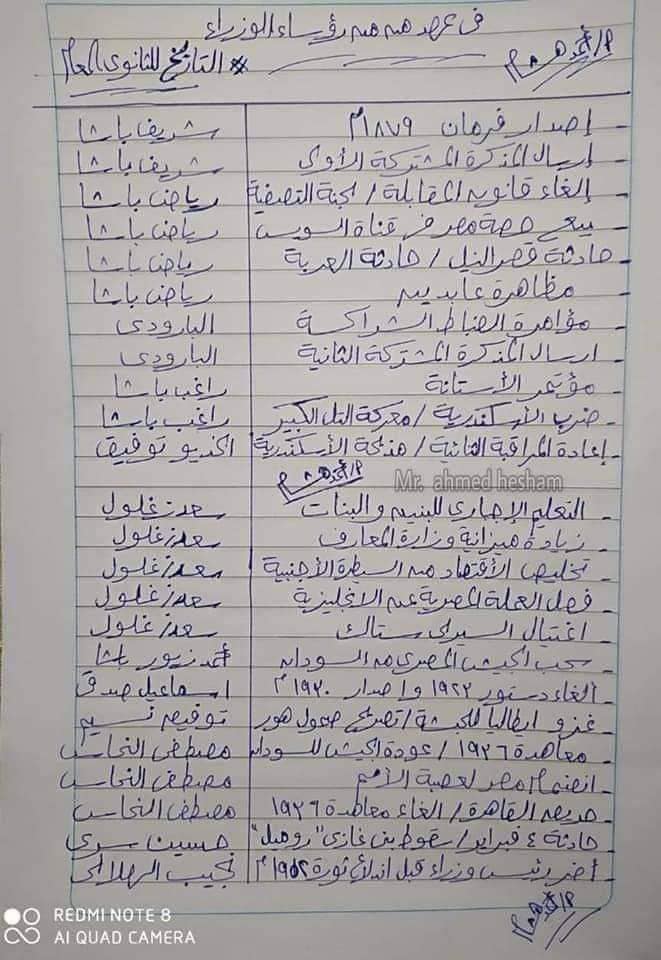 فى عهد من من رؤساء الوزراء
أ/أحمد هشام
# التاريخ للثانوى العام
- إصدار فرمان ١٨٧٩م شريف باشا
- إرسال المذكرة المشتركة الأولى شريف باشا
- إلغاء قانون المقابلة / لجنة التصفية رياض باشا
- بيع حصة مصر فى قناة السويس رياض باشا
- حادثة قصر النيل / حادثة العربة رياض باشا
- مظاهرة عابدين رياض باشا
- مؤامرة الضباط الشراكسة البارودى
- ارسال المذكرة المشتركة الثانية البارودى
- مؤتمر الأستانة راغب باشا
- ضرب الأسكندرية / معركة التل الكبير راغب باشا
- إعادة المراقبة الثنائية / مذبحة الأسكندرية الخديو توفيق
أ/أحمد هشام
Mr. ahmed hesham
- التعليم الإجبارى للبنين والبنات سعد زغلول
- زيادة ميزانية وزارة المعارف سعد زغلول
- تخليص الأقتصاد من السيطرة الأجنبية سعد زغلول
- فصل العملة المصرية عن الانجليزية سعد زغلول
- اغتيال السيرلى ستاك سعد زغلول
- سحب الجيش المصرى من السودان أحمد زيور باشا
- الغاء دستور ١٩٢٣ واصدار ١٩٣٠م اسماعيل صدقى
- غزو ايطاليا للحبشة / تصريح صمول هور توفيق نسيم
- معاهدة ١٩٣٦ / عودة الجيش للسودان مصطفى النحاس
- انضمام مصر لعصبة الأمم مصطفى النحاس
- حريق القاهرة / الغاء معاهدة ١٩٣٦ مصطفى النحاس
- حادثة ٤ فبراير / سقوط بنى غازى "روميل" حسين سرى
- أخر رئيس وزراء قبل اندلاع ثورة ١٩٥٢م نجيب الهلالى
أ/أحمد هشام
REDMI NOTE 8
AI QUAD CAMERA